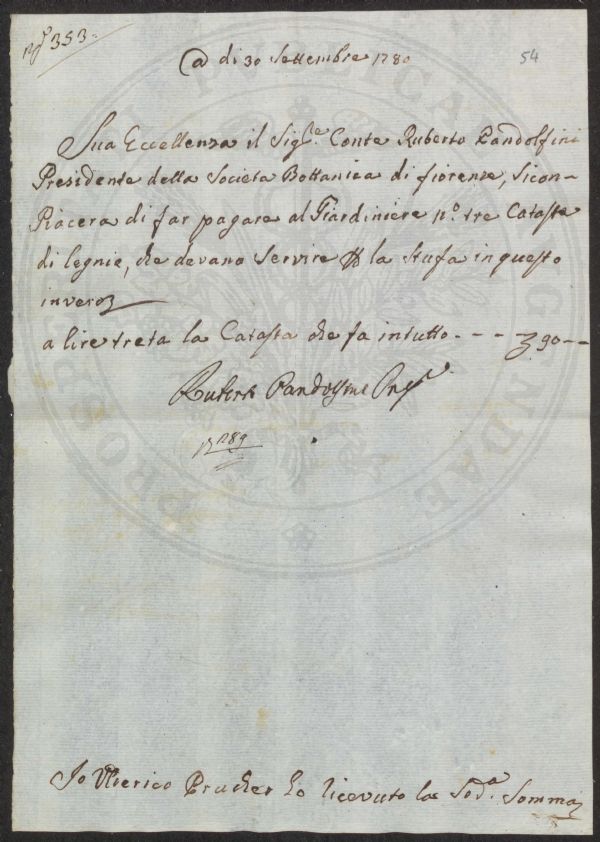 353
54
@ di 30 Settembre 1780
Sua Eccellenza il Sig.re Conte Ruberto Pandolfini
Presidente della Societa Bottanica di fiorenze, Sicon-
Piacera di far pagare al Giardiniere n.o tre Cataste
di legnie, che devano Servire la Stufa in questo
inver
a lire treta la Catasta che fa intutto - - - - 90 - -
Ruberto Pandolfini
Io Ulderico Prucher ho licevuto la Sod.a Somma